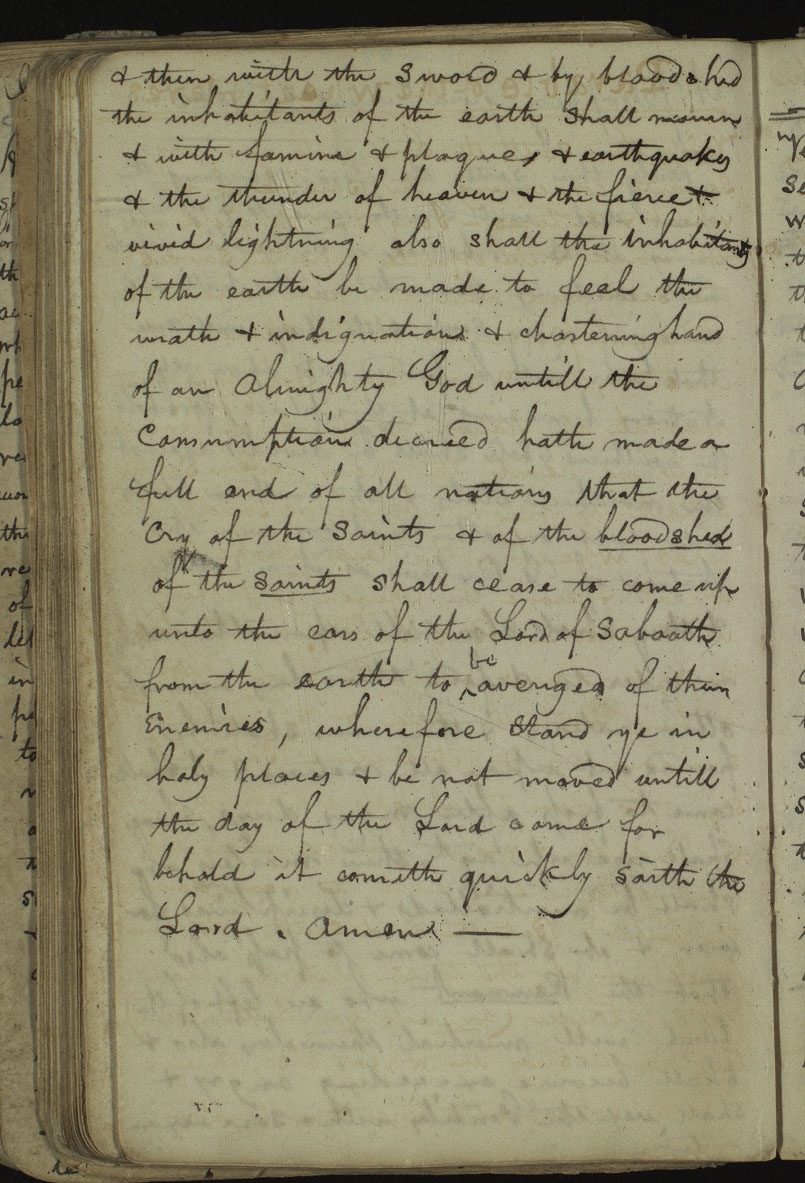 & then with the sword & by bloodshed
the inhabitants of the earth shall mourn
& with famine & plagues & earthquakes
& the thunder of heaven & the fierce &
vivid lightning also shall the inhabitants
of the earth be made to feel the
wrath & indignation & chastening hand
of an Almighty God untill the
Consumption decreed hath made a
full end of all nations that the
Cry of the Saints & of the bloodshed
of the Saints shall cease to come up
unto the ears of the Lord of Sabaath
from the earth to be avenged of their
Enemies, wherefore stand ye in
holy places & be not moved untill
the day of the Lord come for
behold it cometh quickly saith the
Lord. Amen —